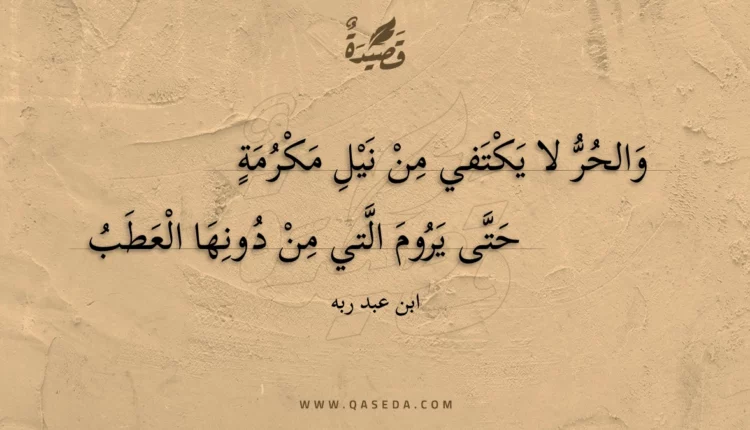 قَصِيدَةٌ
وَالحُرُّ لا يَكْتَفي مِنْ نَيْلِ مَكْرُمَةٍ
حَتَّى يَرُومَ الَّتي مِنْ دُونِهَا الْعَطَبُ
ابن عبد ربه
WWW.QASEDA.COM